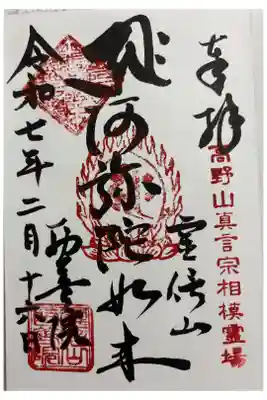 奉拝
高野山真言宗相模霊場
阿弥陀如来
令和七年二月十六日